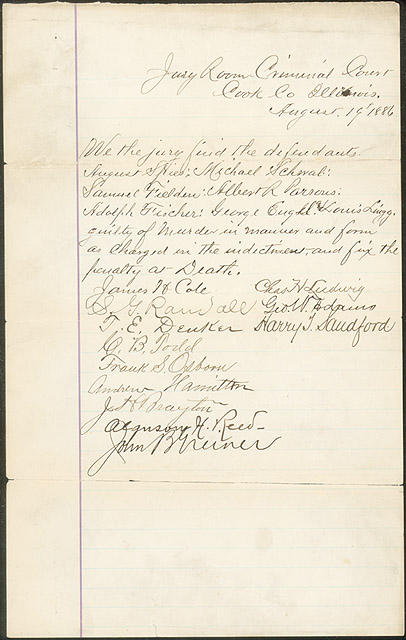 Jury Room Criminal Court
Cook Co Illinois.
August. 19' 1886
We the jury find the defendants
August Spies: Michael Schwab:
Samuel Fielden: Albert R Parsons:
Adolph Fischer: George Engel: & Louis Lingg.
guilty of Murder in manner and form
as charged in the indictment, and fix the
penalty at Death.
James H Cole Chas H Ludwig
S. G. Randall Geo. W. Adams
T. E. Denker Harry T. Sandford
C. B. Todd
Frank S. Osborn
Andrew Hamilton
J H Brayton
Alanson H. Reed
John B Greiner